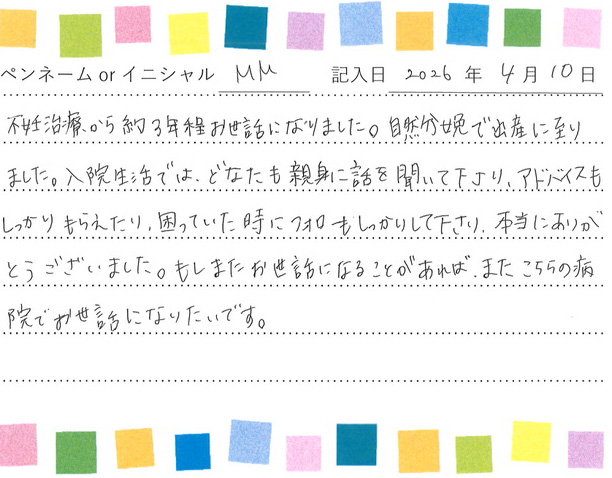 ペンネーム or イニシャル MM 記入日 2026 年 4 月 10 日
不妊治療から約3年程お世話になりました。自然分娩で出産に至り
ました。入院生活では、どなたも親身に話を聞いて下さり、アドバイスも
しっかりもらえたり、困っていた時にフォローもしっかりして下さり、本当にありが
とうございました。もしまたお世話になることがあれば、またこちらの病
院でお世話になりたいです。